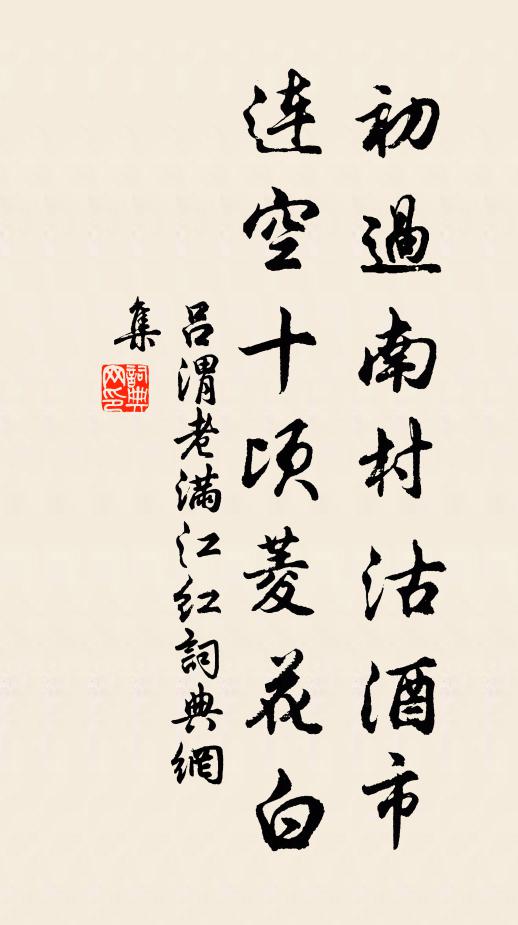 初過南村沽酒市
連空十頃菱花白
呂渭老滿江紅詞典網
集
詞典
网印